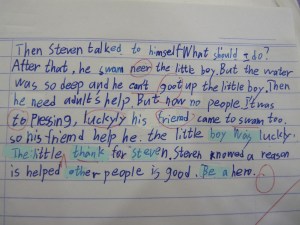 Then Steven talked to himself What should I do?
After that, he swam neer the little boy. But the water
was so deep and he can't goot up the little boy. Then
he need adult's help. But now no people. It was
to Plesing, luckyly his friend came to swam too.
so his friend help he. the little boy was lucky.
The little thank for Steven. Steven knowed a reason
is helped other people is good. Be a hero.